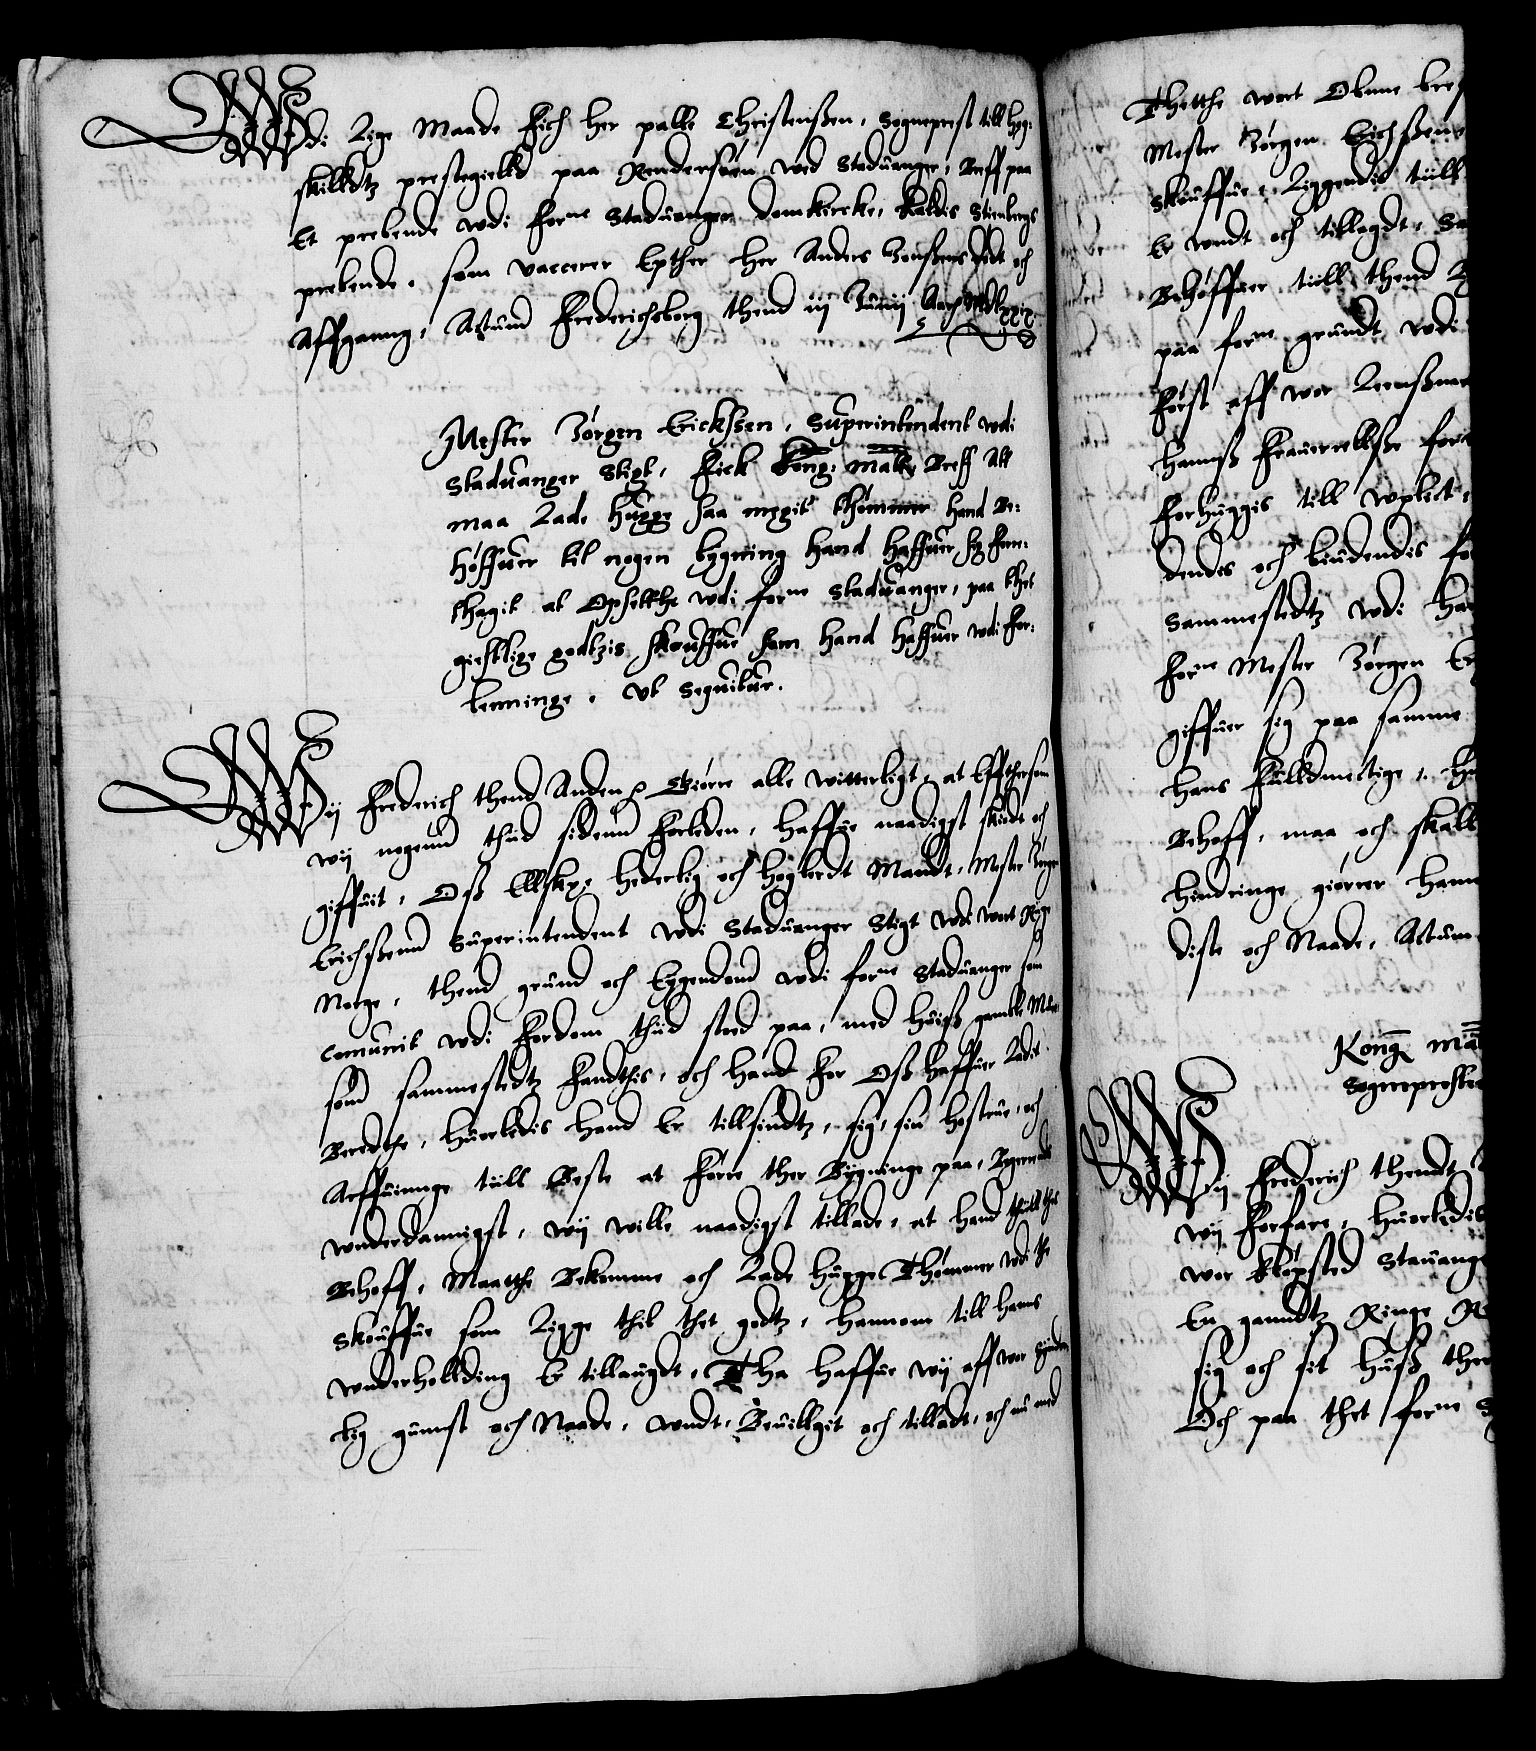 Wdi Lige Maade Fich Her palle Christenßen, Sogneprest till Hog:
skilldtz prestegielld paa Rendersøen wed Staduanger, Breff paa
Et prebende wdi forne Staduanger domkircke, kaldis Stienbergs
prebende, som vaccerer Epther Her Anders Jenßens død och
Affganng, Actum Frederichsborg thend iij Junij Aar MDLxxix
Mester Jørgen Erickßen, Superintendent wdi
Staduanger Stigt, Fick Kong: Matts Breff Att
maa Lade hugge saa megit thømmer hand Be:
høffuer til nogen bygning hand haffuer sig fore:
thagit at Opsetthe wdi forne Staduanger, paa thet
giestlige godtzis skouffue som hand haffuer wdi for:
lenninge, vt sequitur.
Wij Frederich thend Anden etc Giørre alle witterligt, at Effthersom
wij nogenn thiid sidenn forleden, haffue naadigst skiødt och
giffuit, Oß Elskel: hederlig och høglerdt Mandt, Mester Jørgen
Erichßenn Superintendent wdi Staduanger Stigt wdi wort Rige
Norge, thend grund och Eygendom wdi forne Staduanger som
Comunit wdi fordom thiid stod paa, med huiß gamble Mur
som sammestedtz fandtis, och hand for Oß haffuer Ladit
Beredthe, huorledis hand Er tillsindtz, sig, sin høstrue, och
Arffuinge till Beste at Føre ther Bygninge paa, Begerendis
wnderdannigst, wij wille naadigst tillade, at hand thill thet
Behoff, Maatthe Bekomme och Lade hugge Thømmer wdi the
skouffue som Ligge thil thet godtz, hannom till hans
wnderholding Er tillaugdt, Tha haffue wij aff wor synder
lig gunst och Naade, wndt, Beuillgit och tilladt, och nu med
Thetthe wort Obne bre
Mester Jørgen Erichßen
skouffue, Liggendis till
Er wndt och tillagdt, Sa
Behøffuer till thend B
paa forne grundt wdi
Først aff wor Lennßma
hannß Frauerellße for
forhuggis till wplict,
dendes och biudendis fo
Sammestedtz wdi ha
forne Mester Jørgen Er
giffuer sig paa samme
hans Fulldmectige, H
Behoff, maa och skall
hindringe giørrer hann
diste och Naade, Actum
Kong: Ma
Sogneprester
Wij Frederich thendt
wij forfare, huorledis
wor kiøpsted Stauang
En ganndtz Ringe R
sig och sit huß ther
Och paa thet forne S